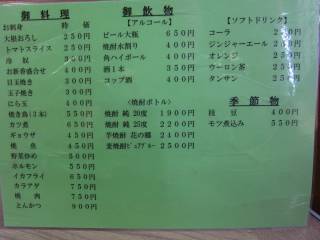 御料理
お刺身 時価
大根おろし 250円
トマトスライス 250円
冷奴 300円
お新香盛合 400円
目玉焼き 300円
玉子焼き 300円
にら玉 400円
焼き鳥(3本) 550円
カツ煮 650円
ギョウザ 450円
焼魚 450円
野菜炒め 500円
ホルモン 550円
イカフライ 650円
カラアゲ 750円
焼肉 750円
とんかつ 900円
御飲物
【アルコール】
ビール大瓶 650円
焼酎水割り 400円
角ハイボール 400円
酒1本 350円
コップ酒 400円
<焼酎ボトル>
焼酎 純 20度 1900円
焼酎 純 25度 2200円
芋焼酎 花の郷 2400円
麦焼酎ピュアブルー 2500円
【ソフトドリンク】
コーラ 250円
ジンジャーエール 250円
オレンジ 250円
ウーロン茶 250円
タンサン 250円
季節物
枝豆 400円
モツ煮込み 550円